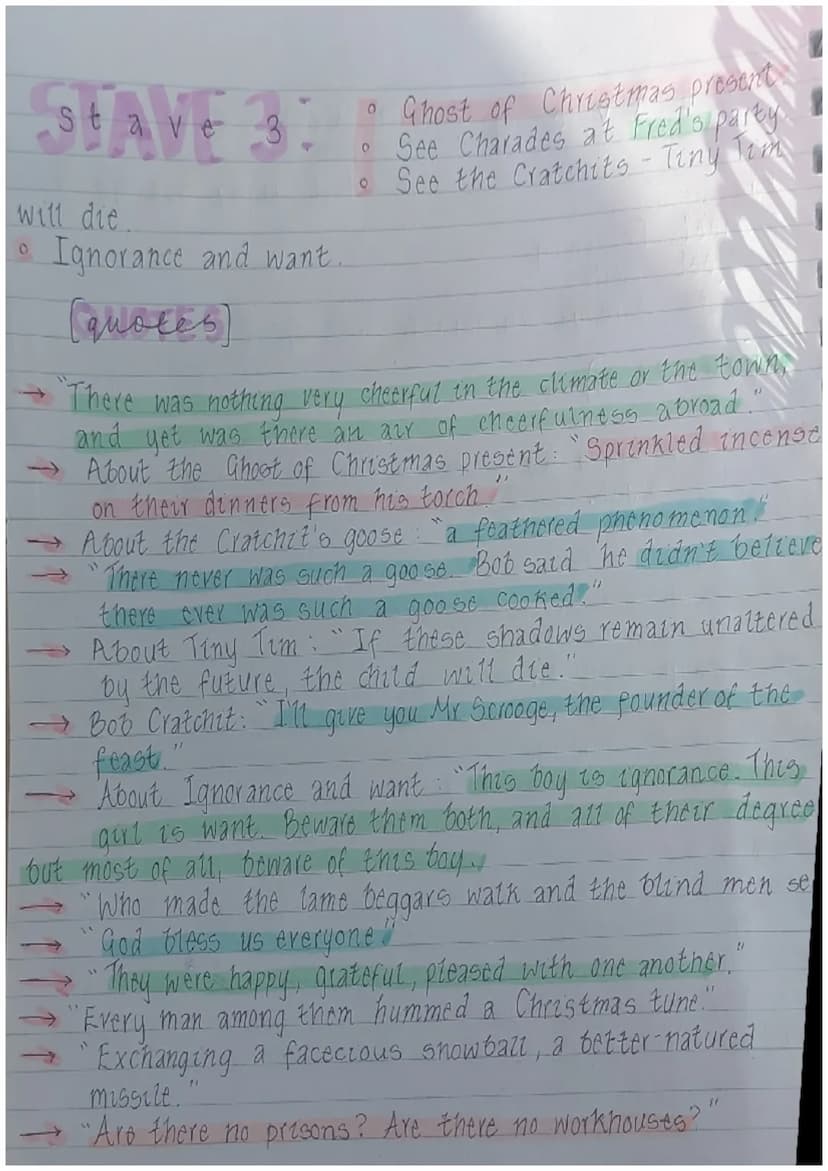 STAVE 3:
Stave 3
° Ghost of Christmas present.
° See Charades at Fred's party
° See the Cratchits - Tiny Tim
will die.
° Ignorance and want.
[quotes]
→ "There was nothing very cheerful in the climate or the town,
and yet was there an air of cheerfulness abroad."
→ About the Ghost of Christmas present: "Sprinkled incense
on their dinners from his torch."
→ About the Cratchit's goose: "a feathered phenomenon."
→ "There never was such a goose. Bob said he didn't believe
there ever was such a goose cooked."
→ About Tiny Tim: "If these shadows remain unaltered
by the future, the child will die."
→ Bob Cratchit: "I'll give you Mr Scrooge, the founder of the
feast."
→ About Ignorance and want: "This boy is ignorance. This
girl is want. Beware them both, and all of their degree
but most of all, beware of this boy.
→ "Who made the lame beggars walk and the blind men se
→ "God bless us everyone"
→ "They were happy, grateful, pleased with one another."
→ "Every man among them hummed a Christmas tune."
→ "Exchanging a facecious snowball, a better-natured
missile."
→ "Are there no prisons? Are there no workhouses?"